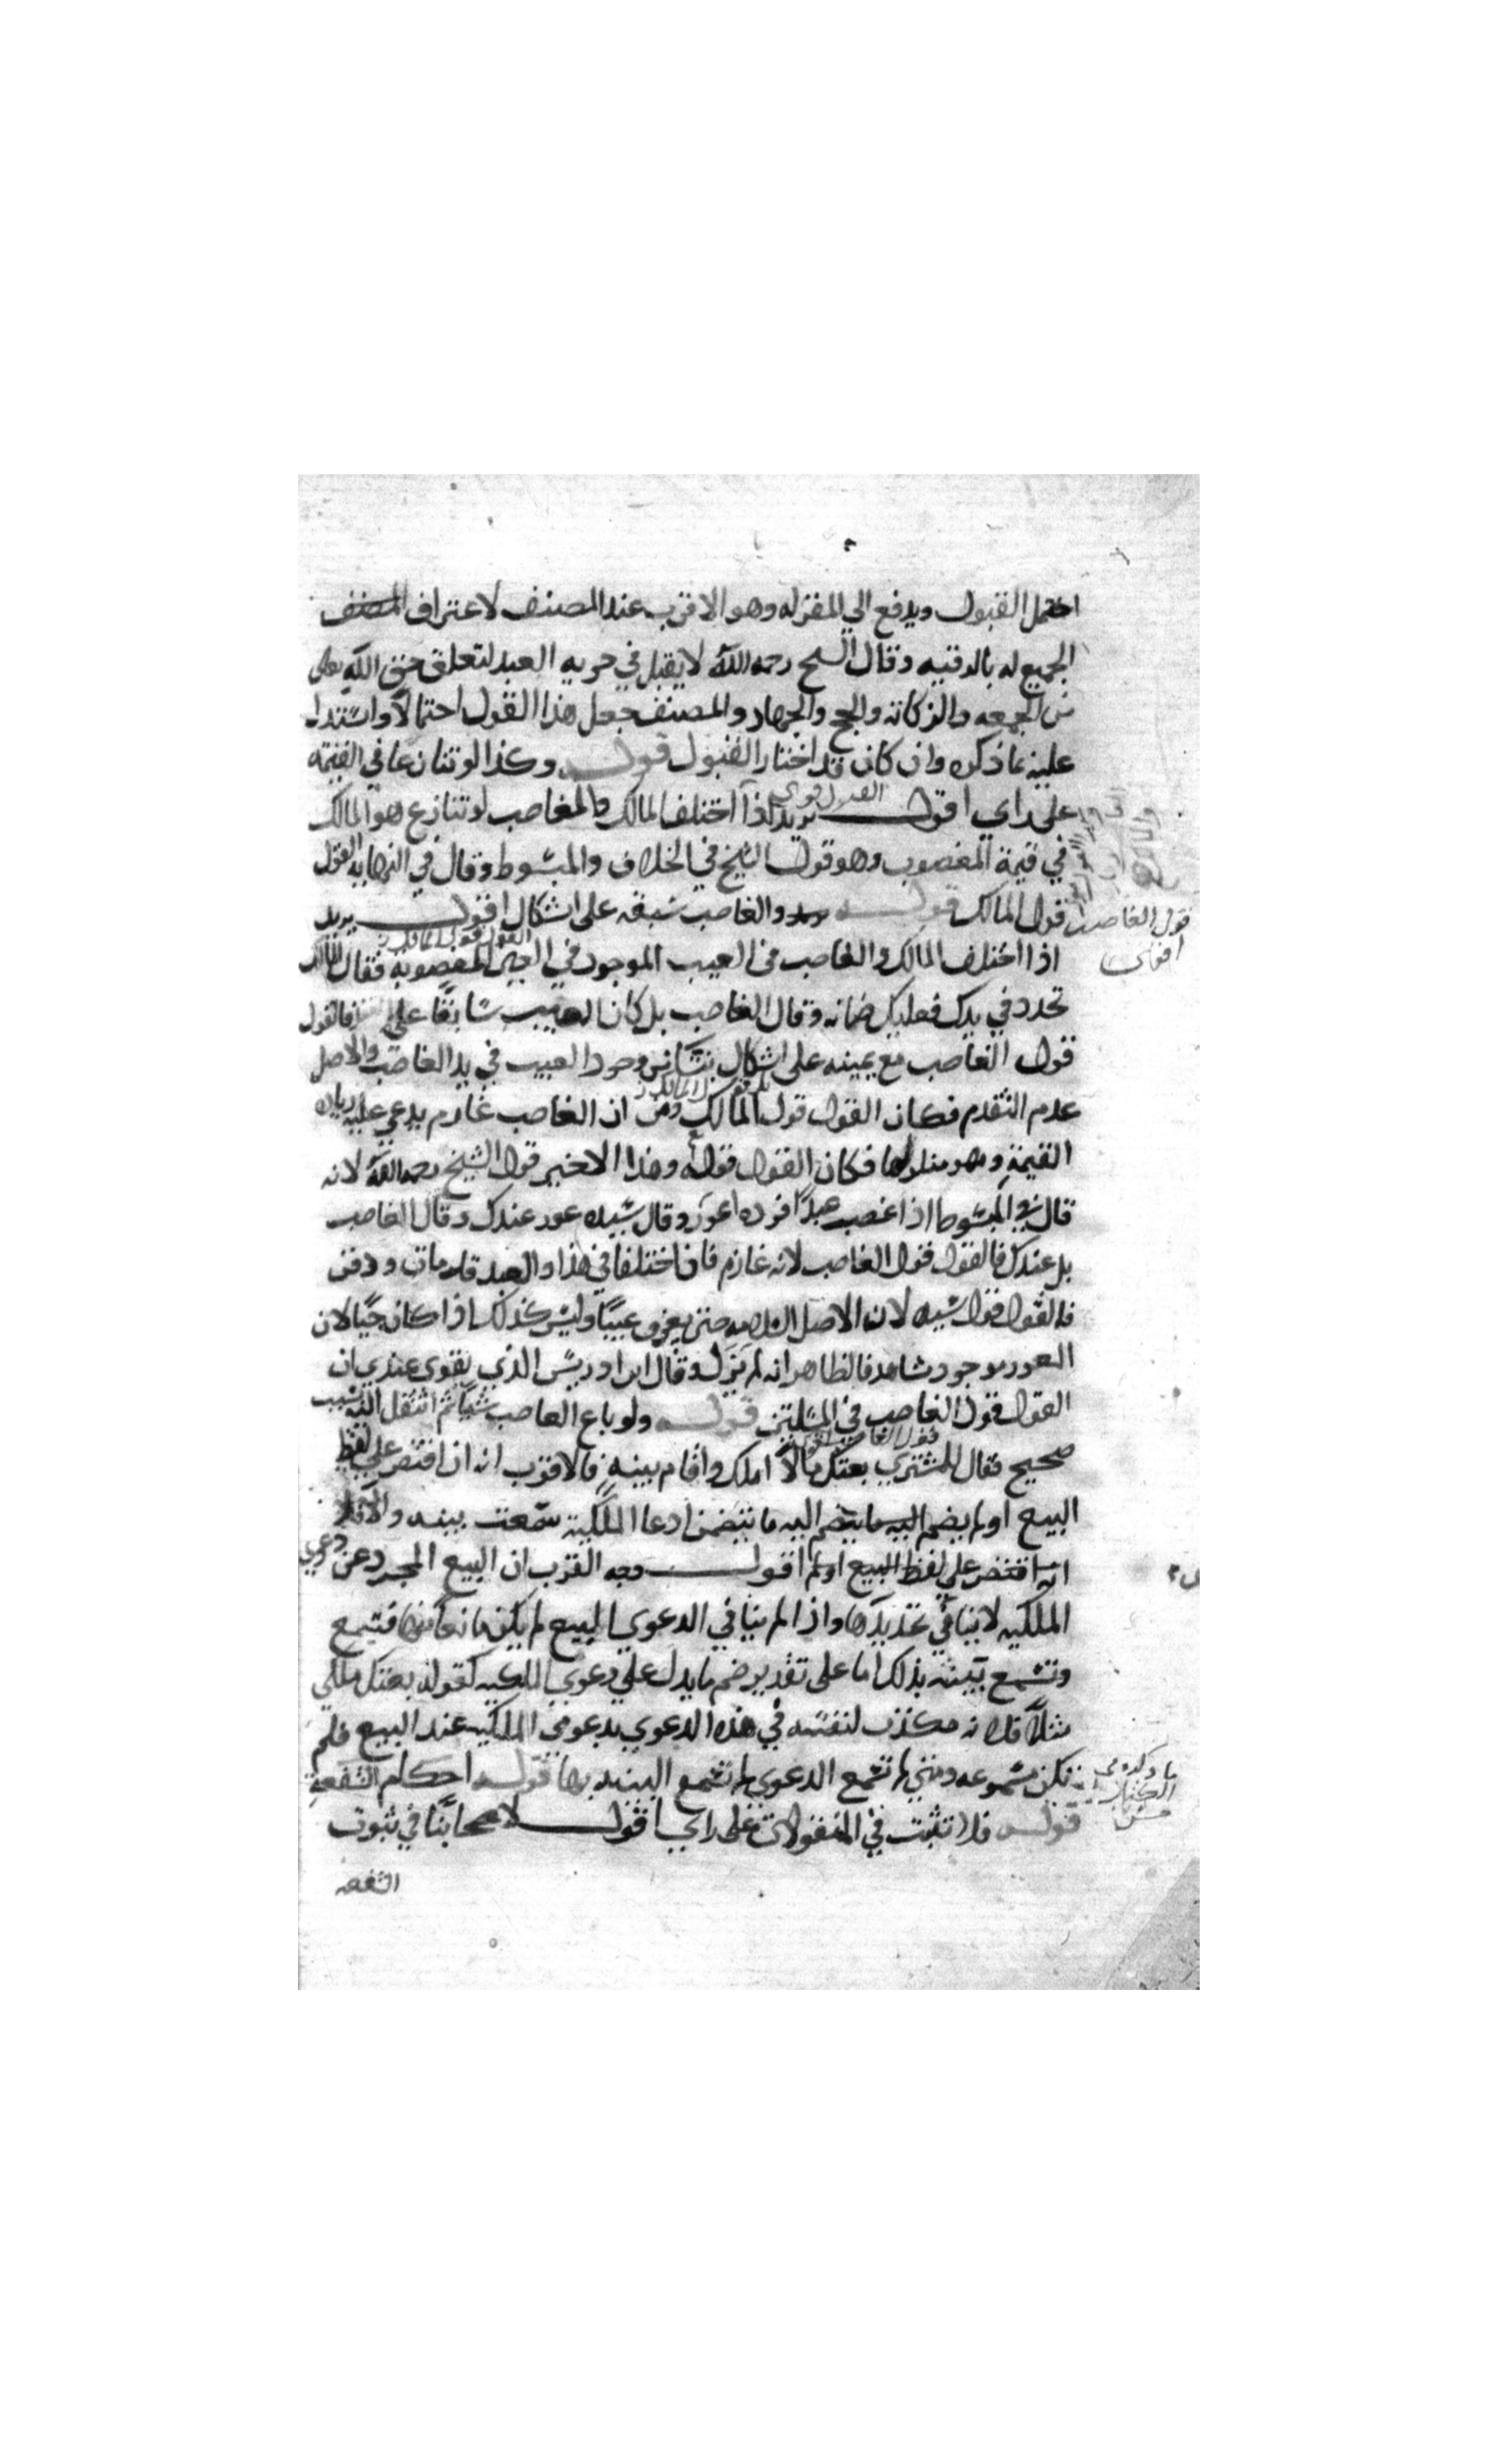 احتمل القبول ويدفع الي المقر له وهو الاقرب عند المصنف لاعتراف المصنف
الجميع له بالرقيه وقال الشيخ رحمه الله لا يقبل في حريه العبد لتعلق حق الله تعالى
من الجمعه والزكاته والحج والجهاد والمصنف جعل هذا القول احتمالا واستدل
عليه بما ذكره وان كان قد اختار القبول قوله وكذا لو تنازعا في القيمة
على راي اقول يريد اذا اختلف المالك والغاصب لو تنازع هو المالك
القول قوى
في قيمة المغصوب وهو قول الشيخ في الخلاف والمبسوط وقال في النهايه القول
قول المالك قوله والغاصب سبقه على اشكال اقول يريد
قول الغاصب
اقوى
القول قول المالك
اذا اختلف المالك والغاصب في العيب الموجود في العين المغصوبة فقال المالك
تجدد في يدك فعليك ضمانه وقال الغاصب بل كان العيب سابقا على فالقول
قول الغاصب مع يمينه على اشكال ينشا من وجود العيب في يد الغاصب والاصل
عدم التقدم فكان القول قول المالك ومن ان الغاصب غارم يدعي عليه زياده
القيمة وهو منكرلها فكان القول قوله وهذا الاخير قول الشيخ رحمه الله لانه
قال في المبسوط اذا غصب عبدا فرده اعور وقال سيده عور عندك وقال الغاصب
بل عندك فالقول قول الغاصب لانه غارم فان اختلفا في هذا والعبد قد مات ودفن
فالقول قول سيده لان الاصل السلامه حتى يعرف عيبا وليس كذلك اذا كان حيا لان
العور موجود شاهد فالظاهر انه لم يزل وقال ابن ادريس الذي يقوى عندي ان
القول قول الغاصب في المسلتين قوله ولو باع الغاصب شيا ثم انتقل اليه بسبب
صحيح فقال للمشتري بعتك مالا املك واقام بينه فالاقرب انه ان اقتصر على لفظ
البيع ولم يضم اليه ما يتضم اليه ما يتضمن ادعا الملكية سمعت بينه والا فلا
ان اقتصر على لفظ البيع ولم اقول وجه القرب ان البيع المجرد عن دعوي
الملكيه لا ينافي تجديدها واذا لم ينافي الدعوي البيع لم يكن مانعا منها فتسمع
وتسمع بينته بذلك اما على تقدير ضم ما يدل على دعوي الملكيه كقوله بعتك ملكي
مثلا فلانه مكذب لنفسه في هذه الدعوي بدعوى الملكيه عند البيع فلم
تكن مسموعه ومتى لم تسمع الدعوي لم تسمع البينه بها قوله احكام الشفعة
ما ذكره في
الكتاب
قوله فلا تثبت في المنقولات على راي اقول لاصحابنا في ثبوت
الشفعه